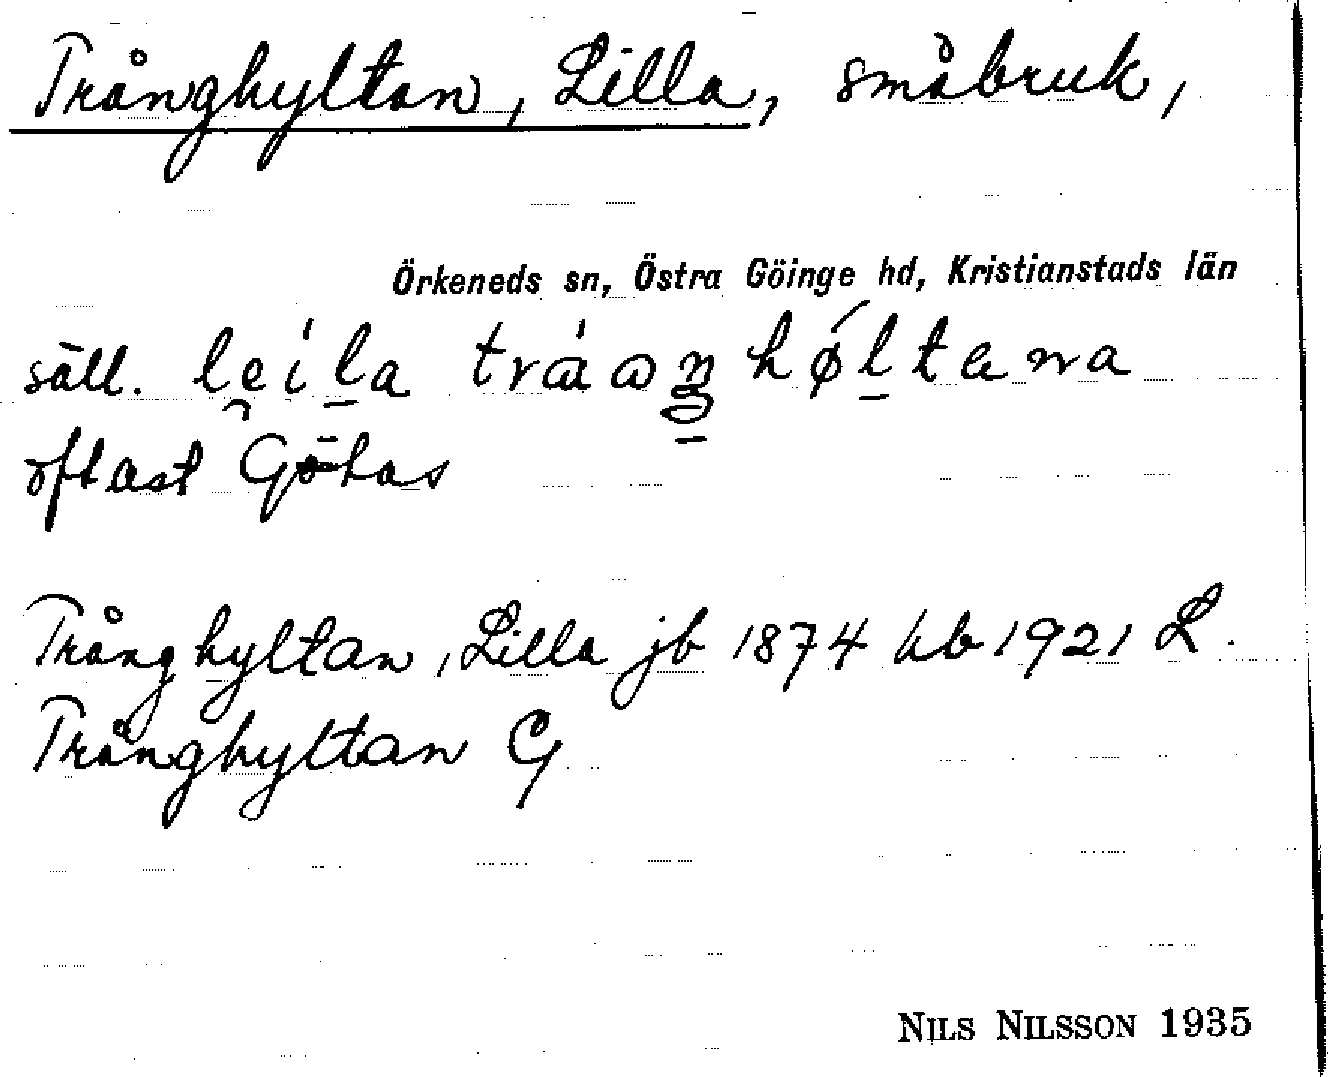 Trånghyltan, Lilla, småbruk,
Örkeneds sn, Östra Göinge hd, Kristianstads län
säll. leila
oftast Götas
Trånghyltan, Lilla jb 1874 hb 1921 L.
Trånghyltan G
NILS NILSSON 1935